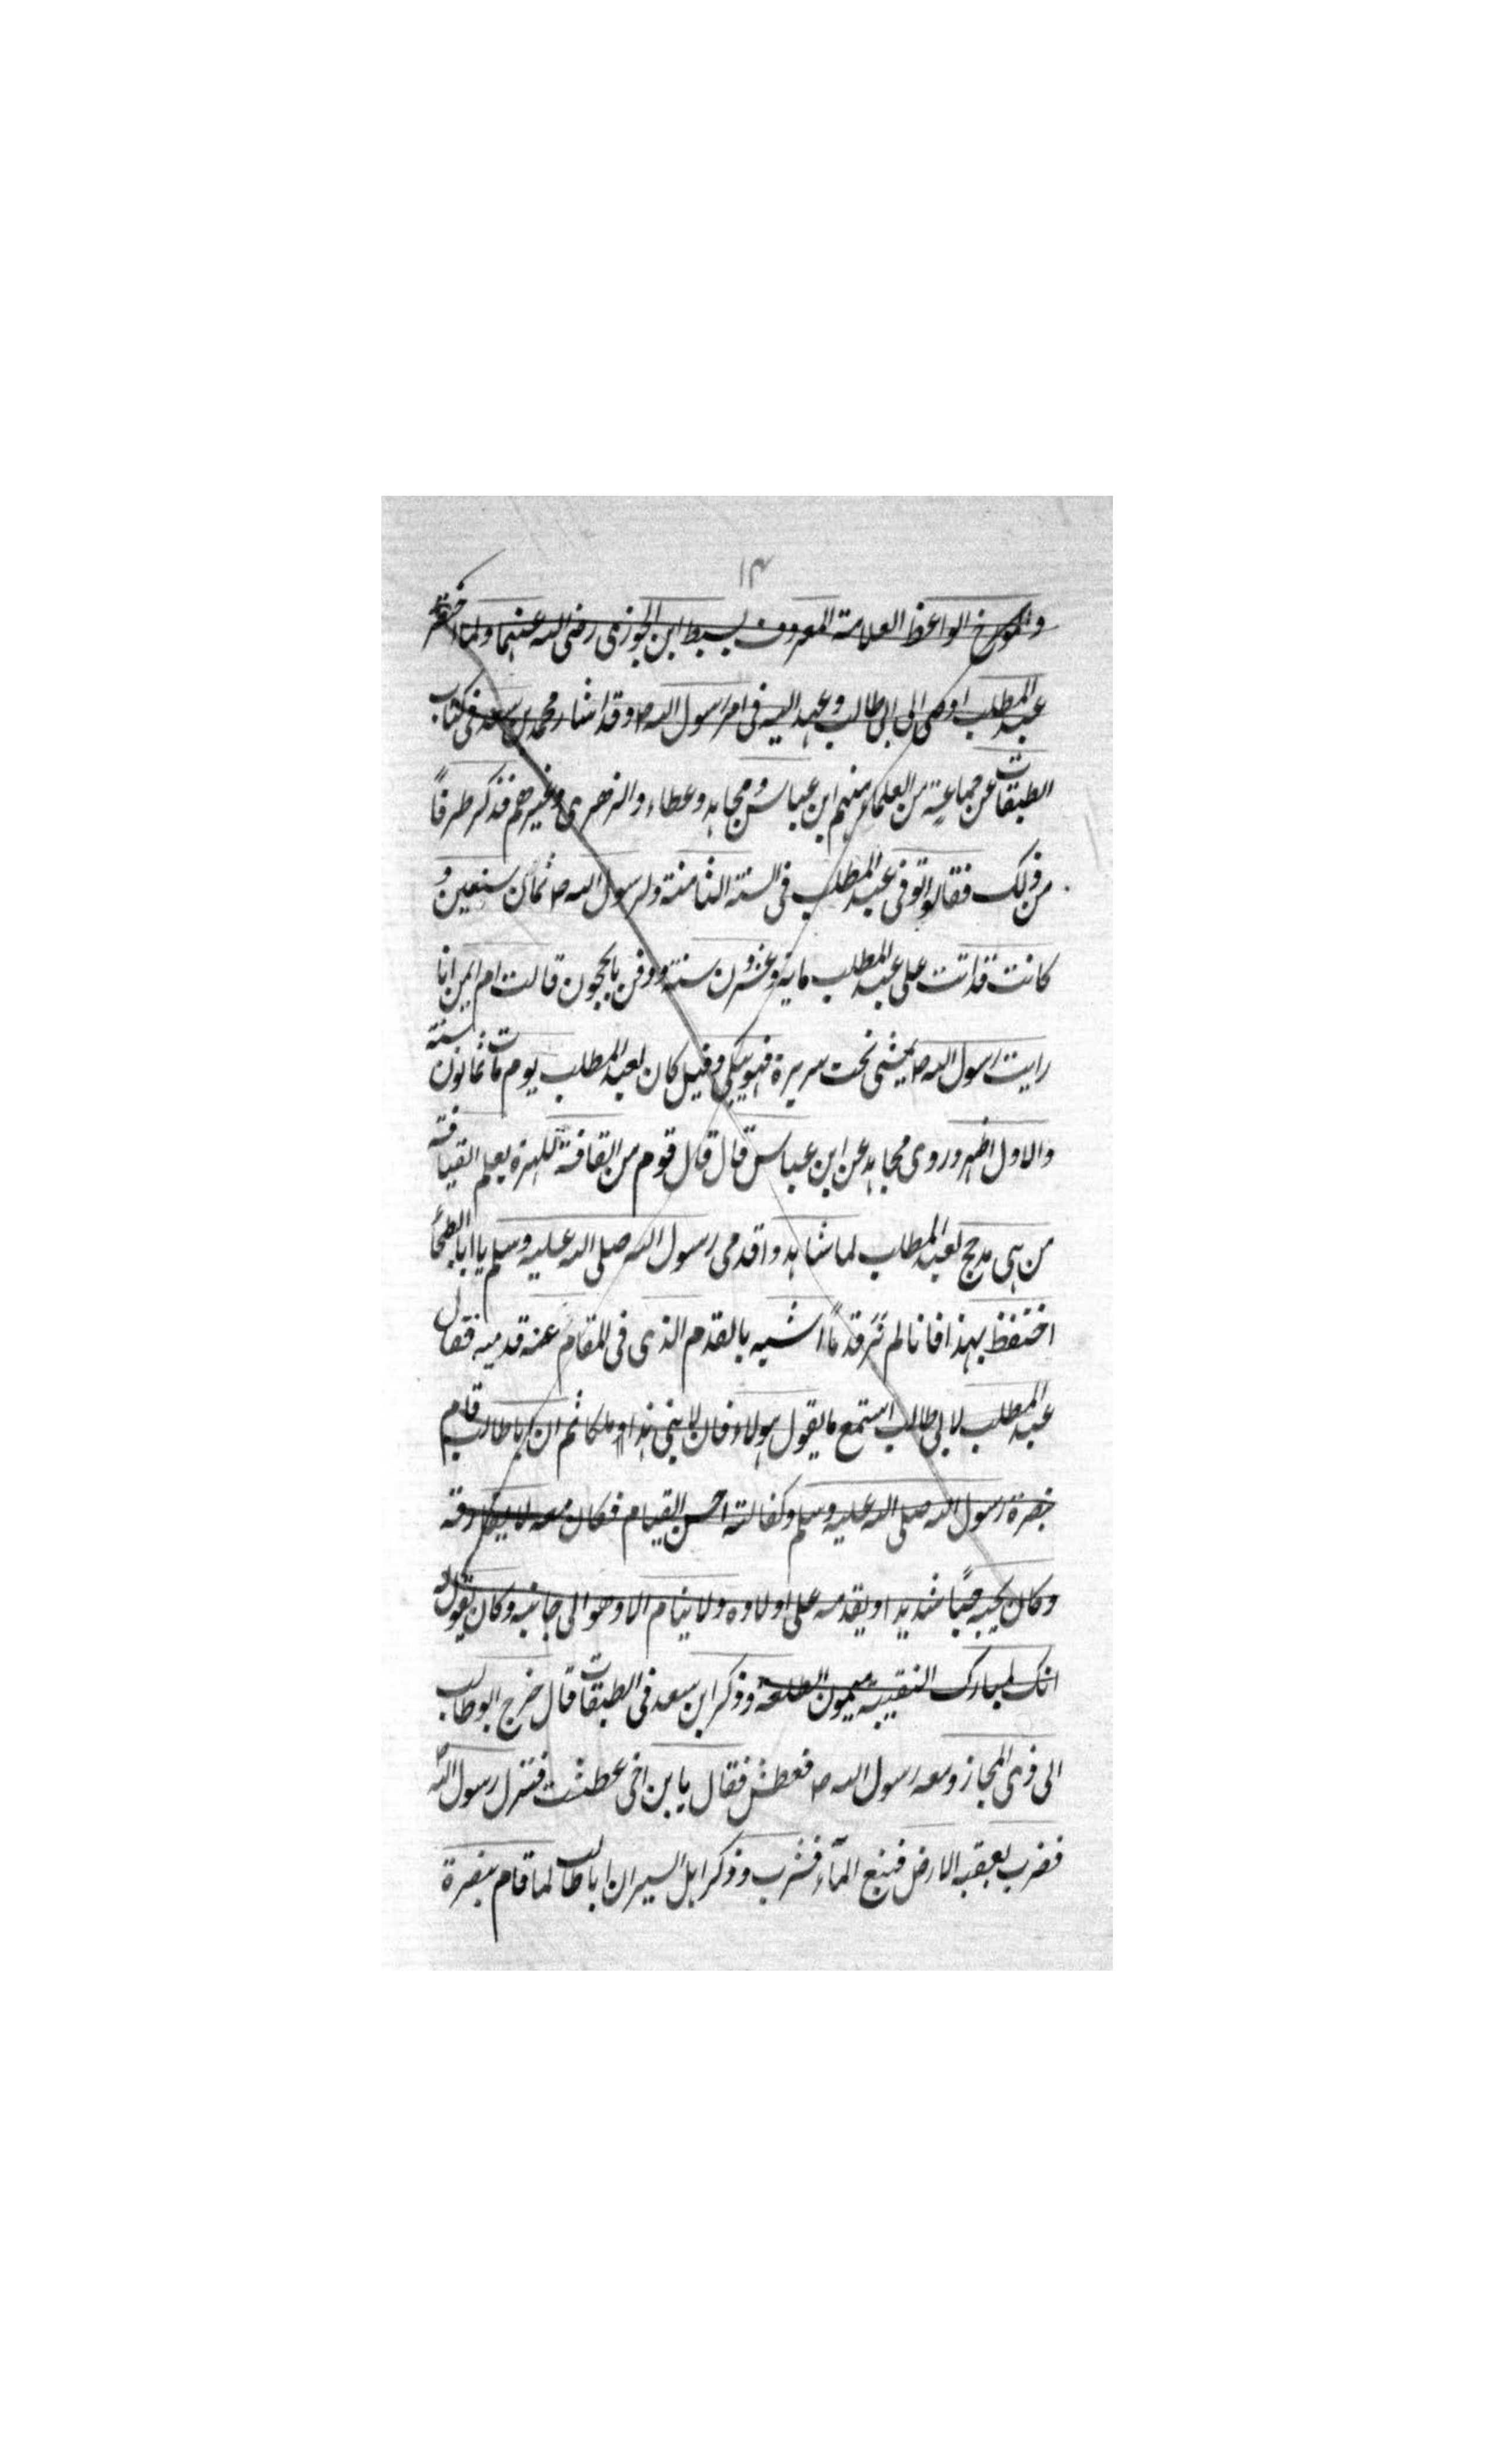 ١٣
والمورخ الواعظ العلامة المعروف بسبط ابن الجوزى رضى الله عنهما ولما احتضر
عبد المطلب اوصى الى ابى طالب وعهد اليه فى امر رسول الله ص وقد اشار محمد بن سعد فى كتاب
الطبقات عن جماعة من العلماء منهم ابن عباس ومجاهد وعطاء والزهرى وغيرهم فذكر طرفاً
من ذلك فقالوا توفى عبد المطلب فى السنة الثامنة ولرسول الله ص ثمان سنين و
كانت قد اتت على عبد المطلب ماية وعشرون سنة ودفن بالحجون قالت ام ايمن انا
رايت رسول الله ص يمشى تحت سريره فهو يبكى وقيل كان لعبد المطلب يوم مات ثمانون سنة
والاول اظهر وروى مجاهد عن ابن عباس قال قال قوم من القافة للهرة بعلم القيافة
من بنى مدحج لعبد المطلب لما شاهدوا قدمى رسول الله صلى الله عليه وسلم يا ابا البطحأ
احتفظ بهذا فانا لم نَرَ قدماً اشبه بالقدم الذى فى المقام عنه قدميه فقال
عبد المطلب لابى طالب استمع ما يقول هولاء فان لابنى هذا ملكا ثم ان ابا طالب قام
بنصرة رسول الله صلى الله عليه وسلم وكفالته احسن القيام فكان معه لا يفارقه
وكان يحبه حبًا شديدا ويقدمه على اولاده ولا ينام الا وهو الى جانبه وكان يقول له
انك لمبارك النقيبة ميمون الطلعة وذكر ابن سعد فى الطبقات قال خرج ابو طالب
الى ذى المجاز ومعه رسول الله ص فعطش فقال يا بن اخى عطشت فنزل رسول الله
فضرب بعقبه الارض فنبع المآء فشرب وذكر اهل السير ان ابا طالب لما قام بنصرة